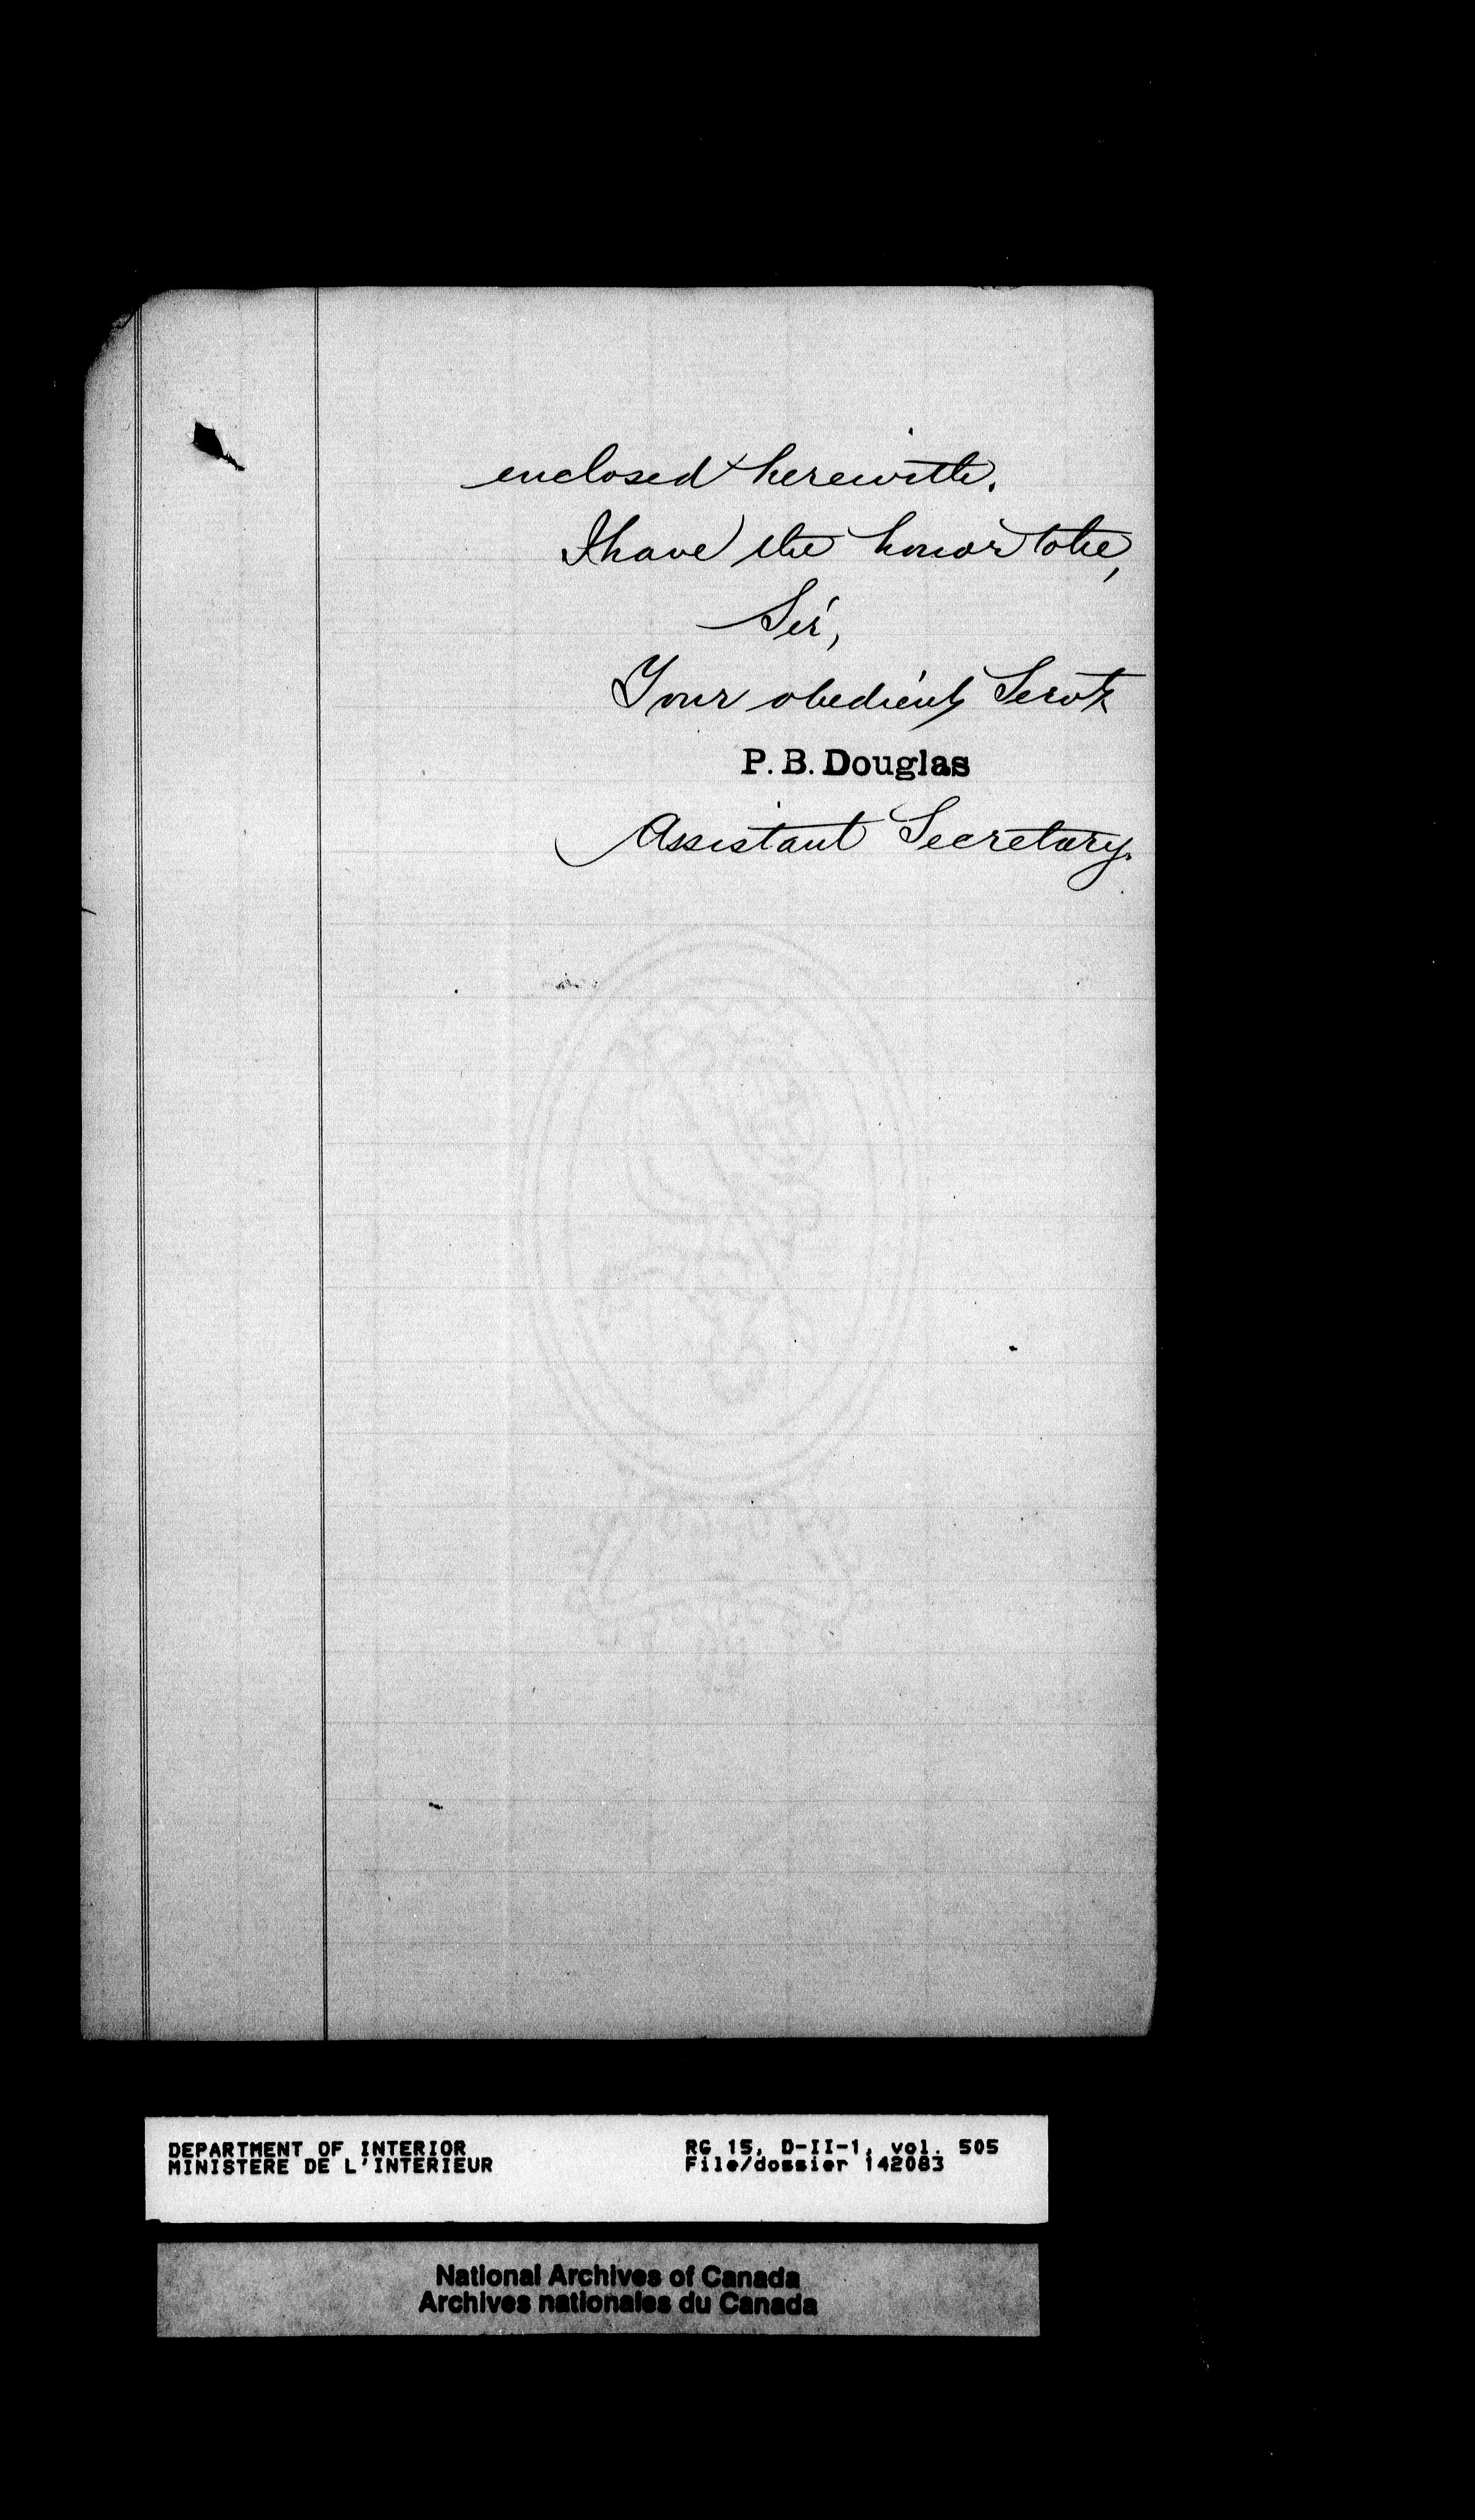 enclosed herewith.
I have the honor to be,
Sir,
Your obedient Servt
P. B. Douglas
Assistant Secretary.
DEPARTMENT OF INTERIOR
MINISTERE DE L'INTERIEUR
RG 15, D-II-1, vol. 505
File/dossier 142083
National Archives of Canada
Archives nationales du Canada